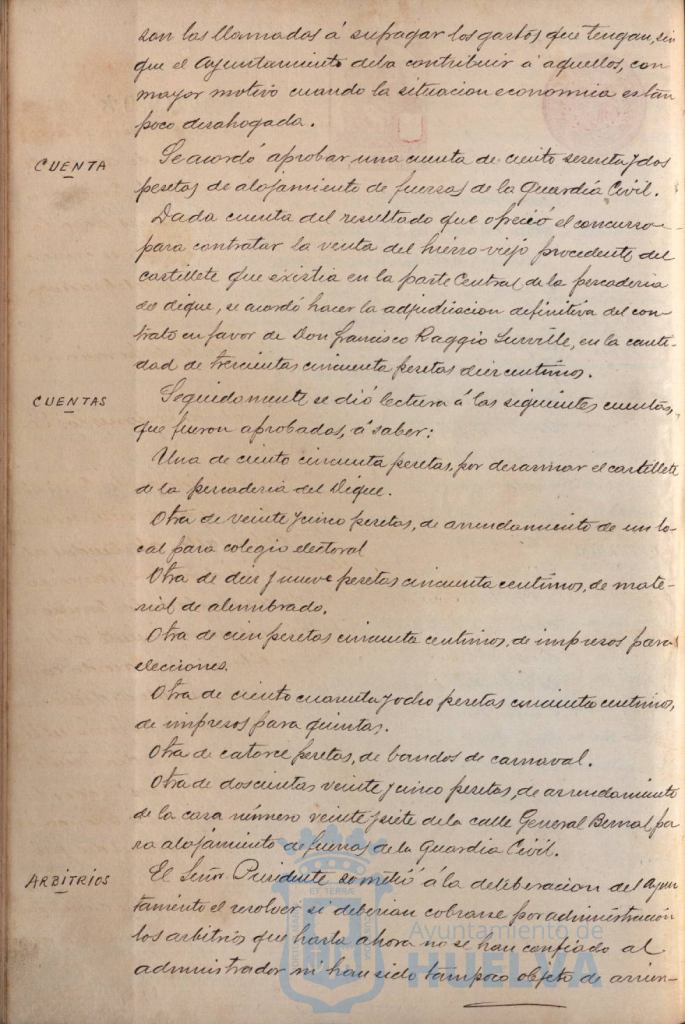 son los llamados á sufragar los gastos que tengan, sin
que el Ayuntamiento deba contribuir á aquellos, con
mayor motivo cuando la situacion economica es tan
poco desahogada.
CUENTA
Se acordó aprobar una cuenta de ciento sesenta y dos
pesetas de alojamiento de fuerzas de la Guardia Civil.
Dada cuenta del resultado que ofreció el concurso
para contratar la venta del hierro viejo procedente del
castillete que existia en la parte Central de la pescaderia
de dique, se acordó hacer la adjudicacion definitiva del con-
trato en favor de Don Francisco Raggio, en la canti-
dad de trescientas cincuenta pesetas diez centimos.
CUENTAS
Seguidamente se dió lectura á las siguientes cuentas,
que fueron aprobadas, á saber:
Una de ciento cincuenta pesetas, por desarmar el castillete
de la pescaderia del Dique.
Otra de veinte y cinco pesetas, de arrendamiento de un lo-
cal para colegio electoral
Otra de diez y nueve pesetas cincuenta centimos, de mate-
rial de alumbrado.
Otra de cien pesetas cincuenta centimos, de impresos para
elecciones.
Otra de ciento cuarenta y ocho pesetas cincuenta centimos,
de impresos para quintas.
Otra de catorce pesetas, de bandos de carnaval.
Otra de doscientas veinte y cinco pesetas, de arrendamiento
de la casa número veinte y siete de la calle General Bernal, pa-
ra alojamiento de fuerzas de la Guardia Civil.
ARBITRIOS
El Señor Presidente sometió á la deliberacion del Ayun
tamiento el resolver si deberian cobrarse por administración
los arbitrios que hasta ahora no se han confiado al
administrador ni han sido tampoco objeto de arrien-
Ayuntamiento de
HUELVA